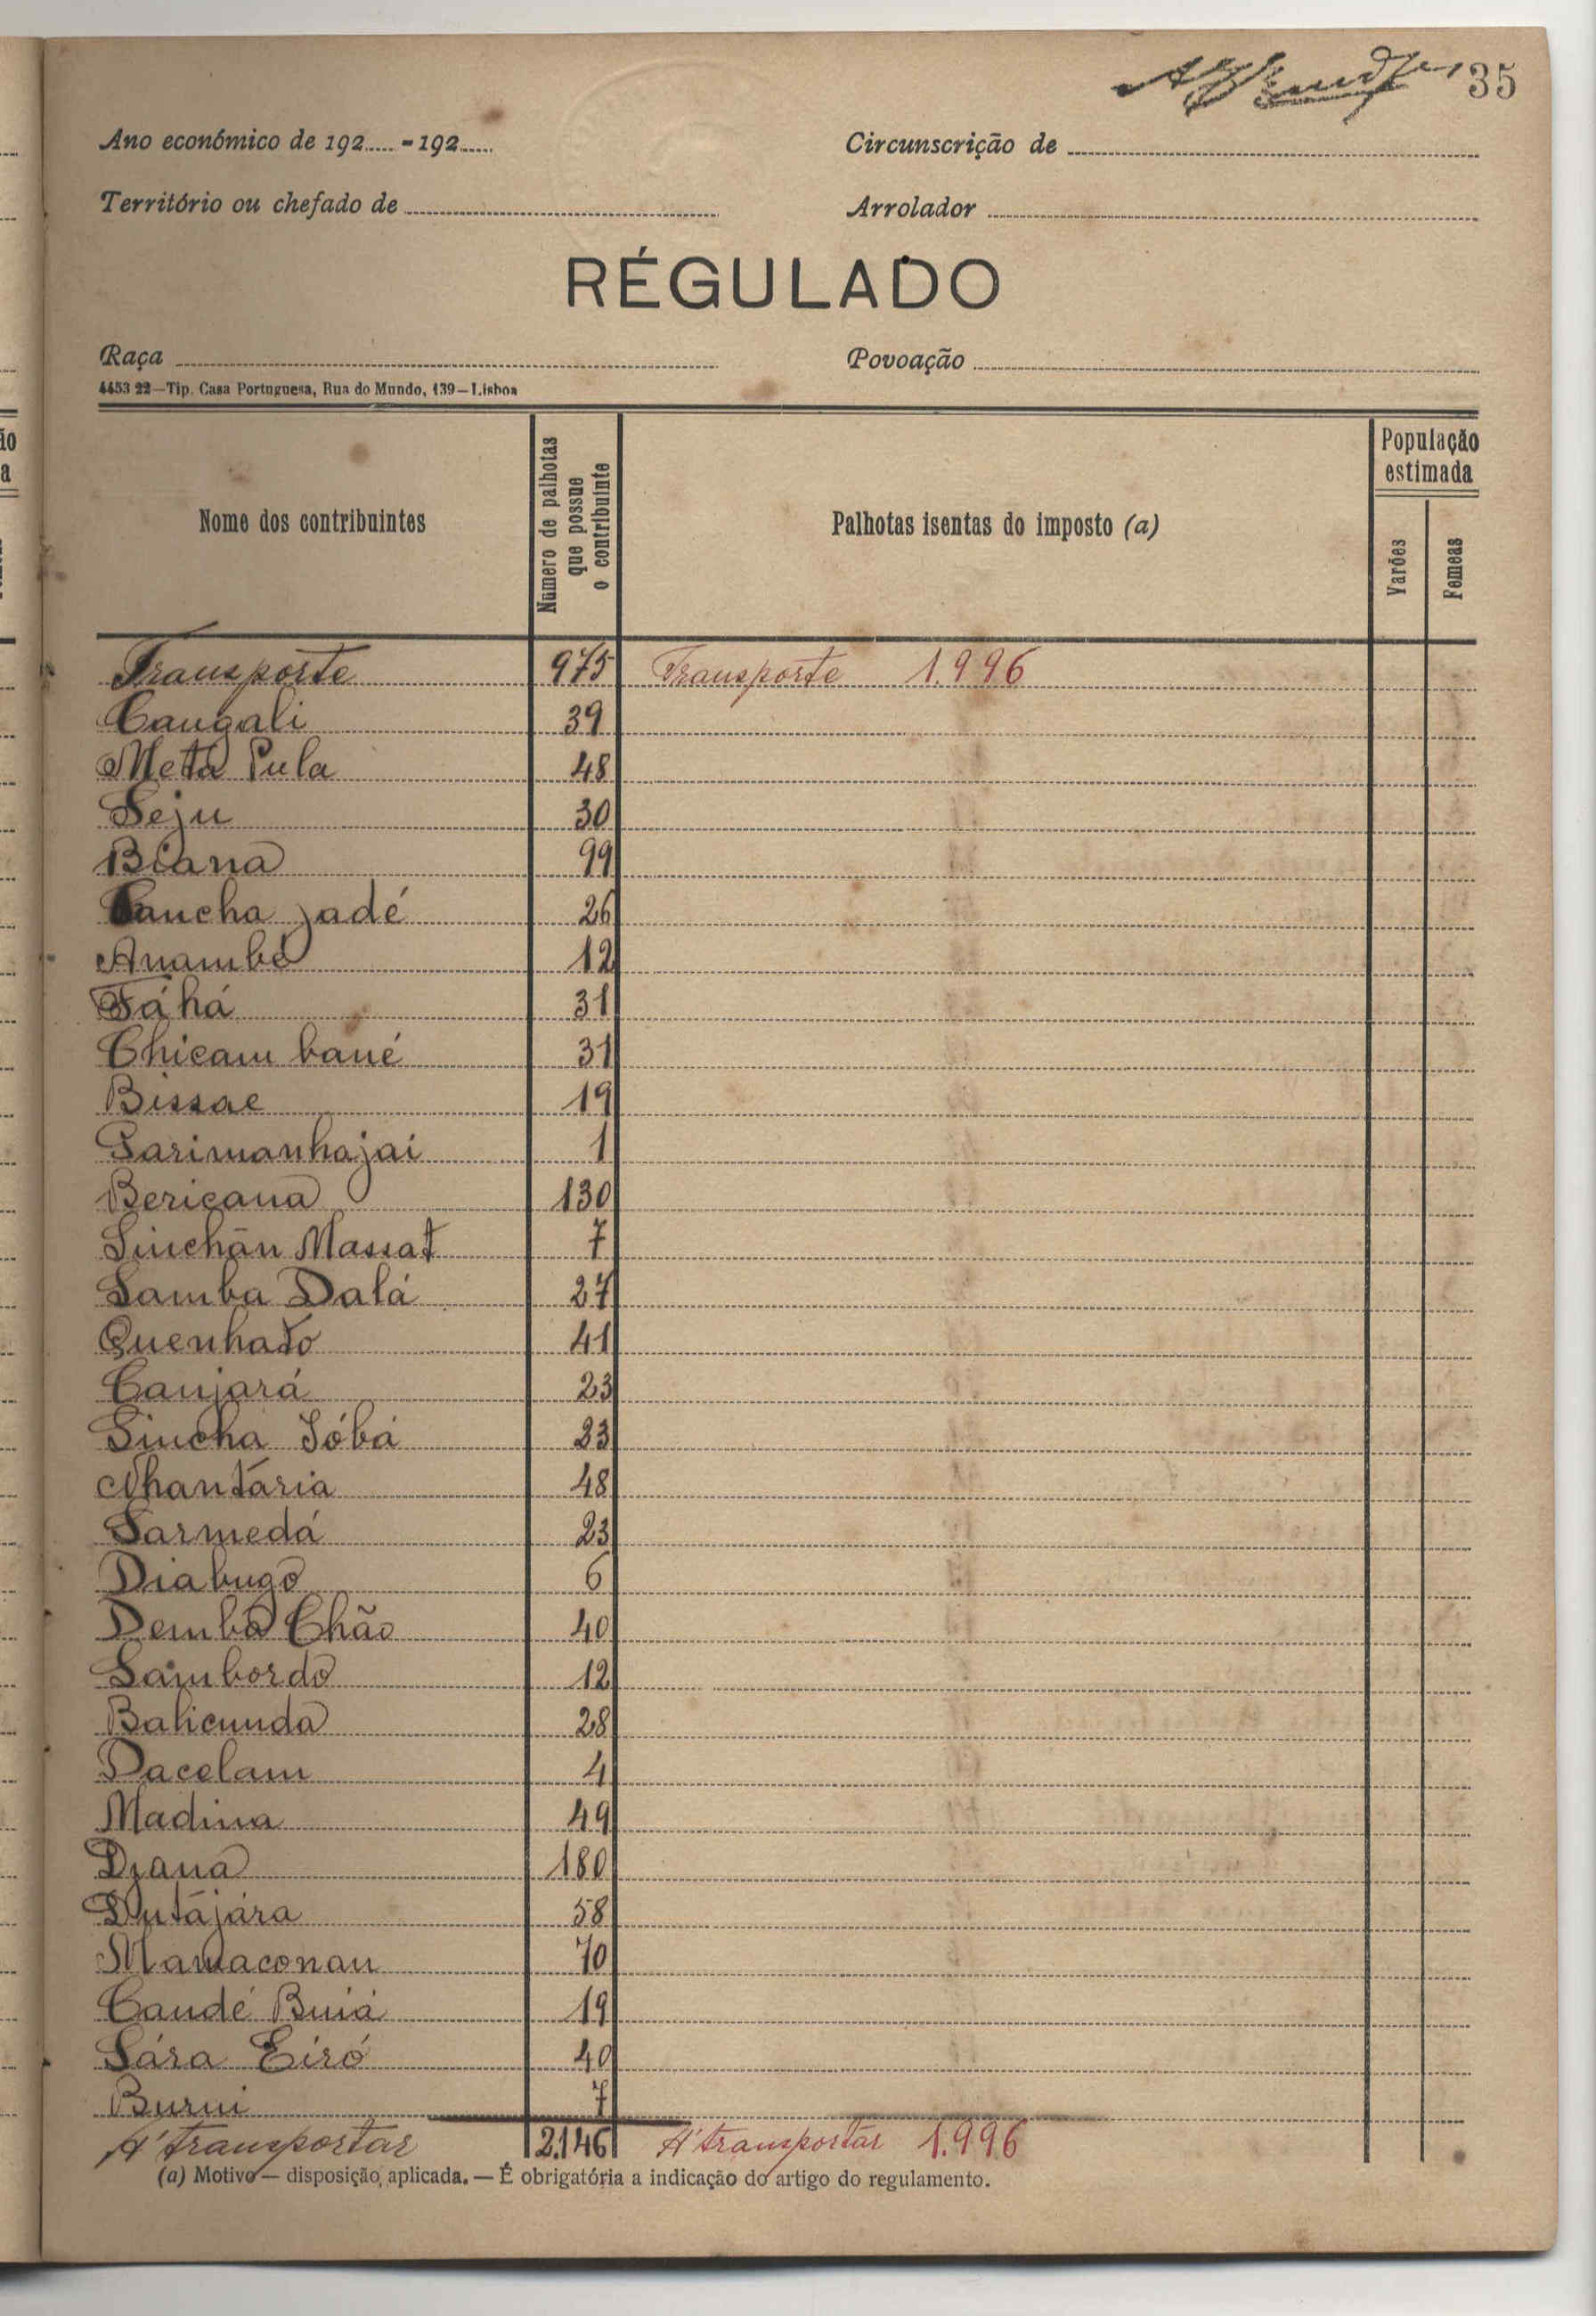 35
Ano económico de 192..... - 192.....
Circunscrição de
Território ou chefado de
Arrolador
RÉGULADO
Raça
Povoação
4453 22—Tip. Casa Portuguesa, Rua do Mundo, 139—Lisboa
Nome dos contribuintes
Número de palhotas que possue o contribuinte
Palhotas isentas do imposto (a)
População estimada
Varões
Femeas
Transporte 975 Transporte 1.996
Cangali 39
Meta Pula 48
Seju 30
Biana 99
Cancha jadé 26
Anambé 12
Fáhá 31
Chicam bané 31
Bissae 19
Sarimanhajai 1
Bericana 130
Sinchãn Massat 7
Samba Dalá 27
Quenhato 41
Canjará 23
Sincha Sóbá 23
Nhantária 48
Sarmedá 23
Diabugo 6
Demba Chão 40
Sambordo 12
Balicunda 28
Dacolam 4
Madina 49
Djana 180
Dutájára 58
Mamaconan 70
Candé Buiá 19
Sára Eiró 40
Buruí 7
A transportar 2.146 A transportar 1.996
(a) Motivo — disposição aplicada. — É obrigatória a indicação do artigo do regulamento.